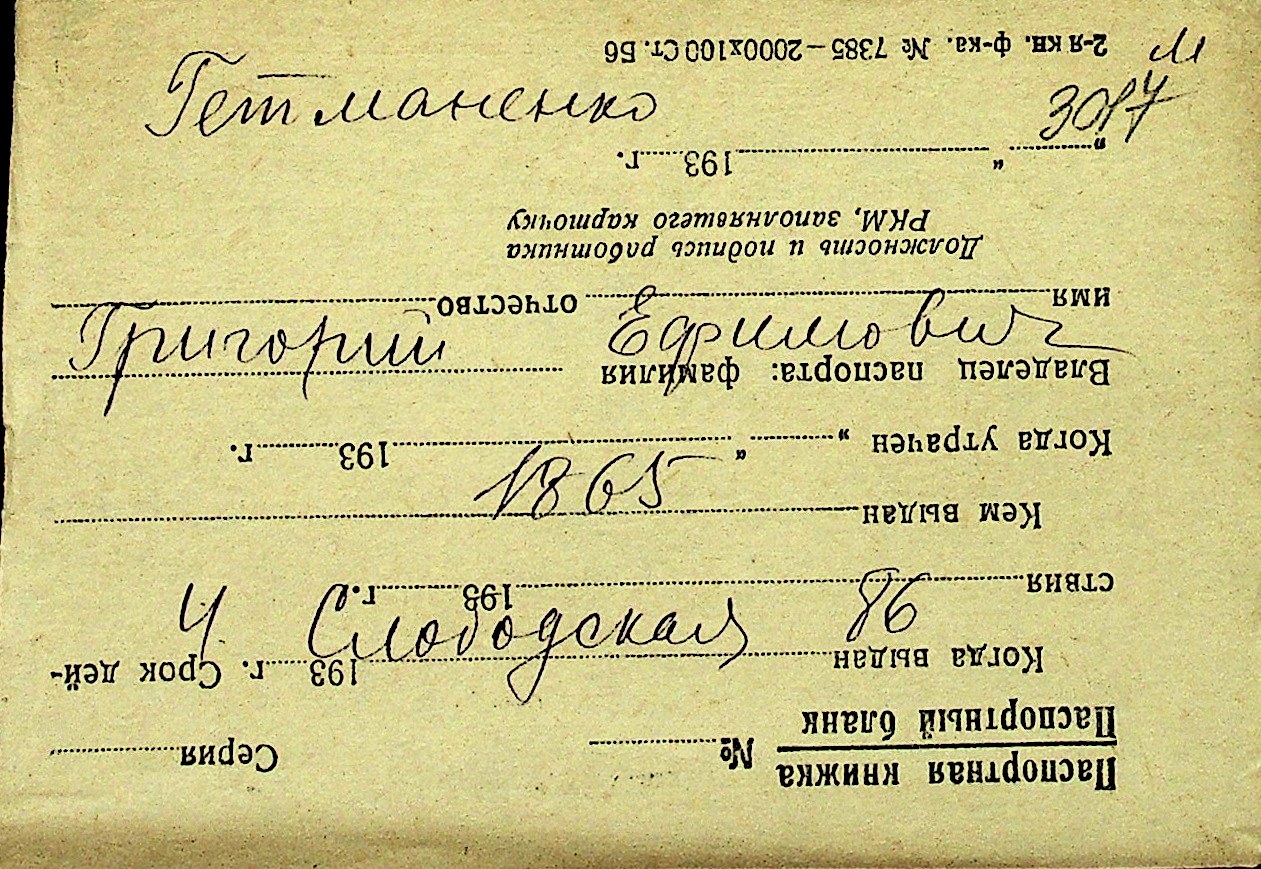 м
Гетманенко 3017
Григорий Ефимович
1865
Ч. Слободская 86
Паспортная книжка № Серия
Паспортный бланк
Когда выдан 193 г. Срок дей-
ствия 193 г.
Кем выдан
Когда утрачен „ “ 193 г.
Владелец паспорта: фамилия
имя отчество
Должность и подпись работника
РКМ, заполнявшего карточку
„ “ 193 г.
2-я кн. ф-ка. № 7385—2000х100 Ст. Б6